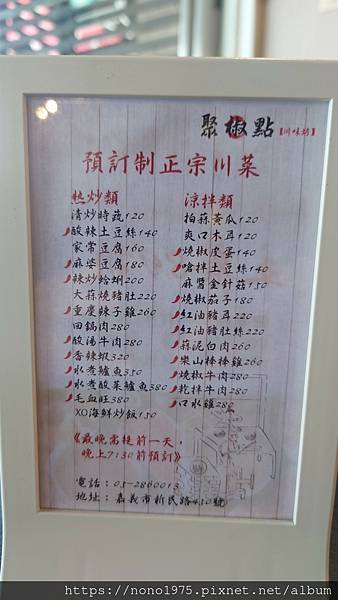 聚椒點【川味坊】
預訂制正宗川菜
熱炒類
清炒時蔬120
酸辣土豆絲140
家常豆腐160
麻婆豆腐180
辣炒蛤蜊200
大蒜燒豬肚220
重慶辣子雞260
回鍋肉280
酸湯牛肉280
香辣蝦320
水煮鱸魚350
水煮酸菜鱸魚380
毛血旺380
XO海鮮炒飯150
涼拌類
拍蒜黃瓜120
爽口木耳120
燒椒皮蛋140
嗆拌土豆絲140
麻醬金針菇150
燒椒茄子180
紅油豬耳220
紅油豬肚絲220
蒜泥白肉260
樂山棒棒雞260
燒椒牛肉280
乾拌牛肉280
口水雞280
《最晚需提前一天，
晚上7:30前預訂》
電話：05-2860013
地址：嘉義市新民路450號
https://nono1975.pixnet.net/album